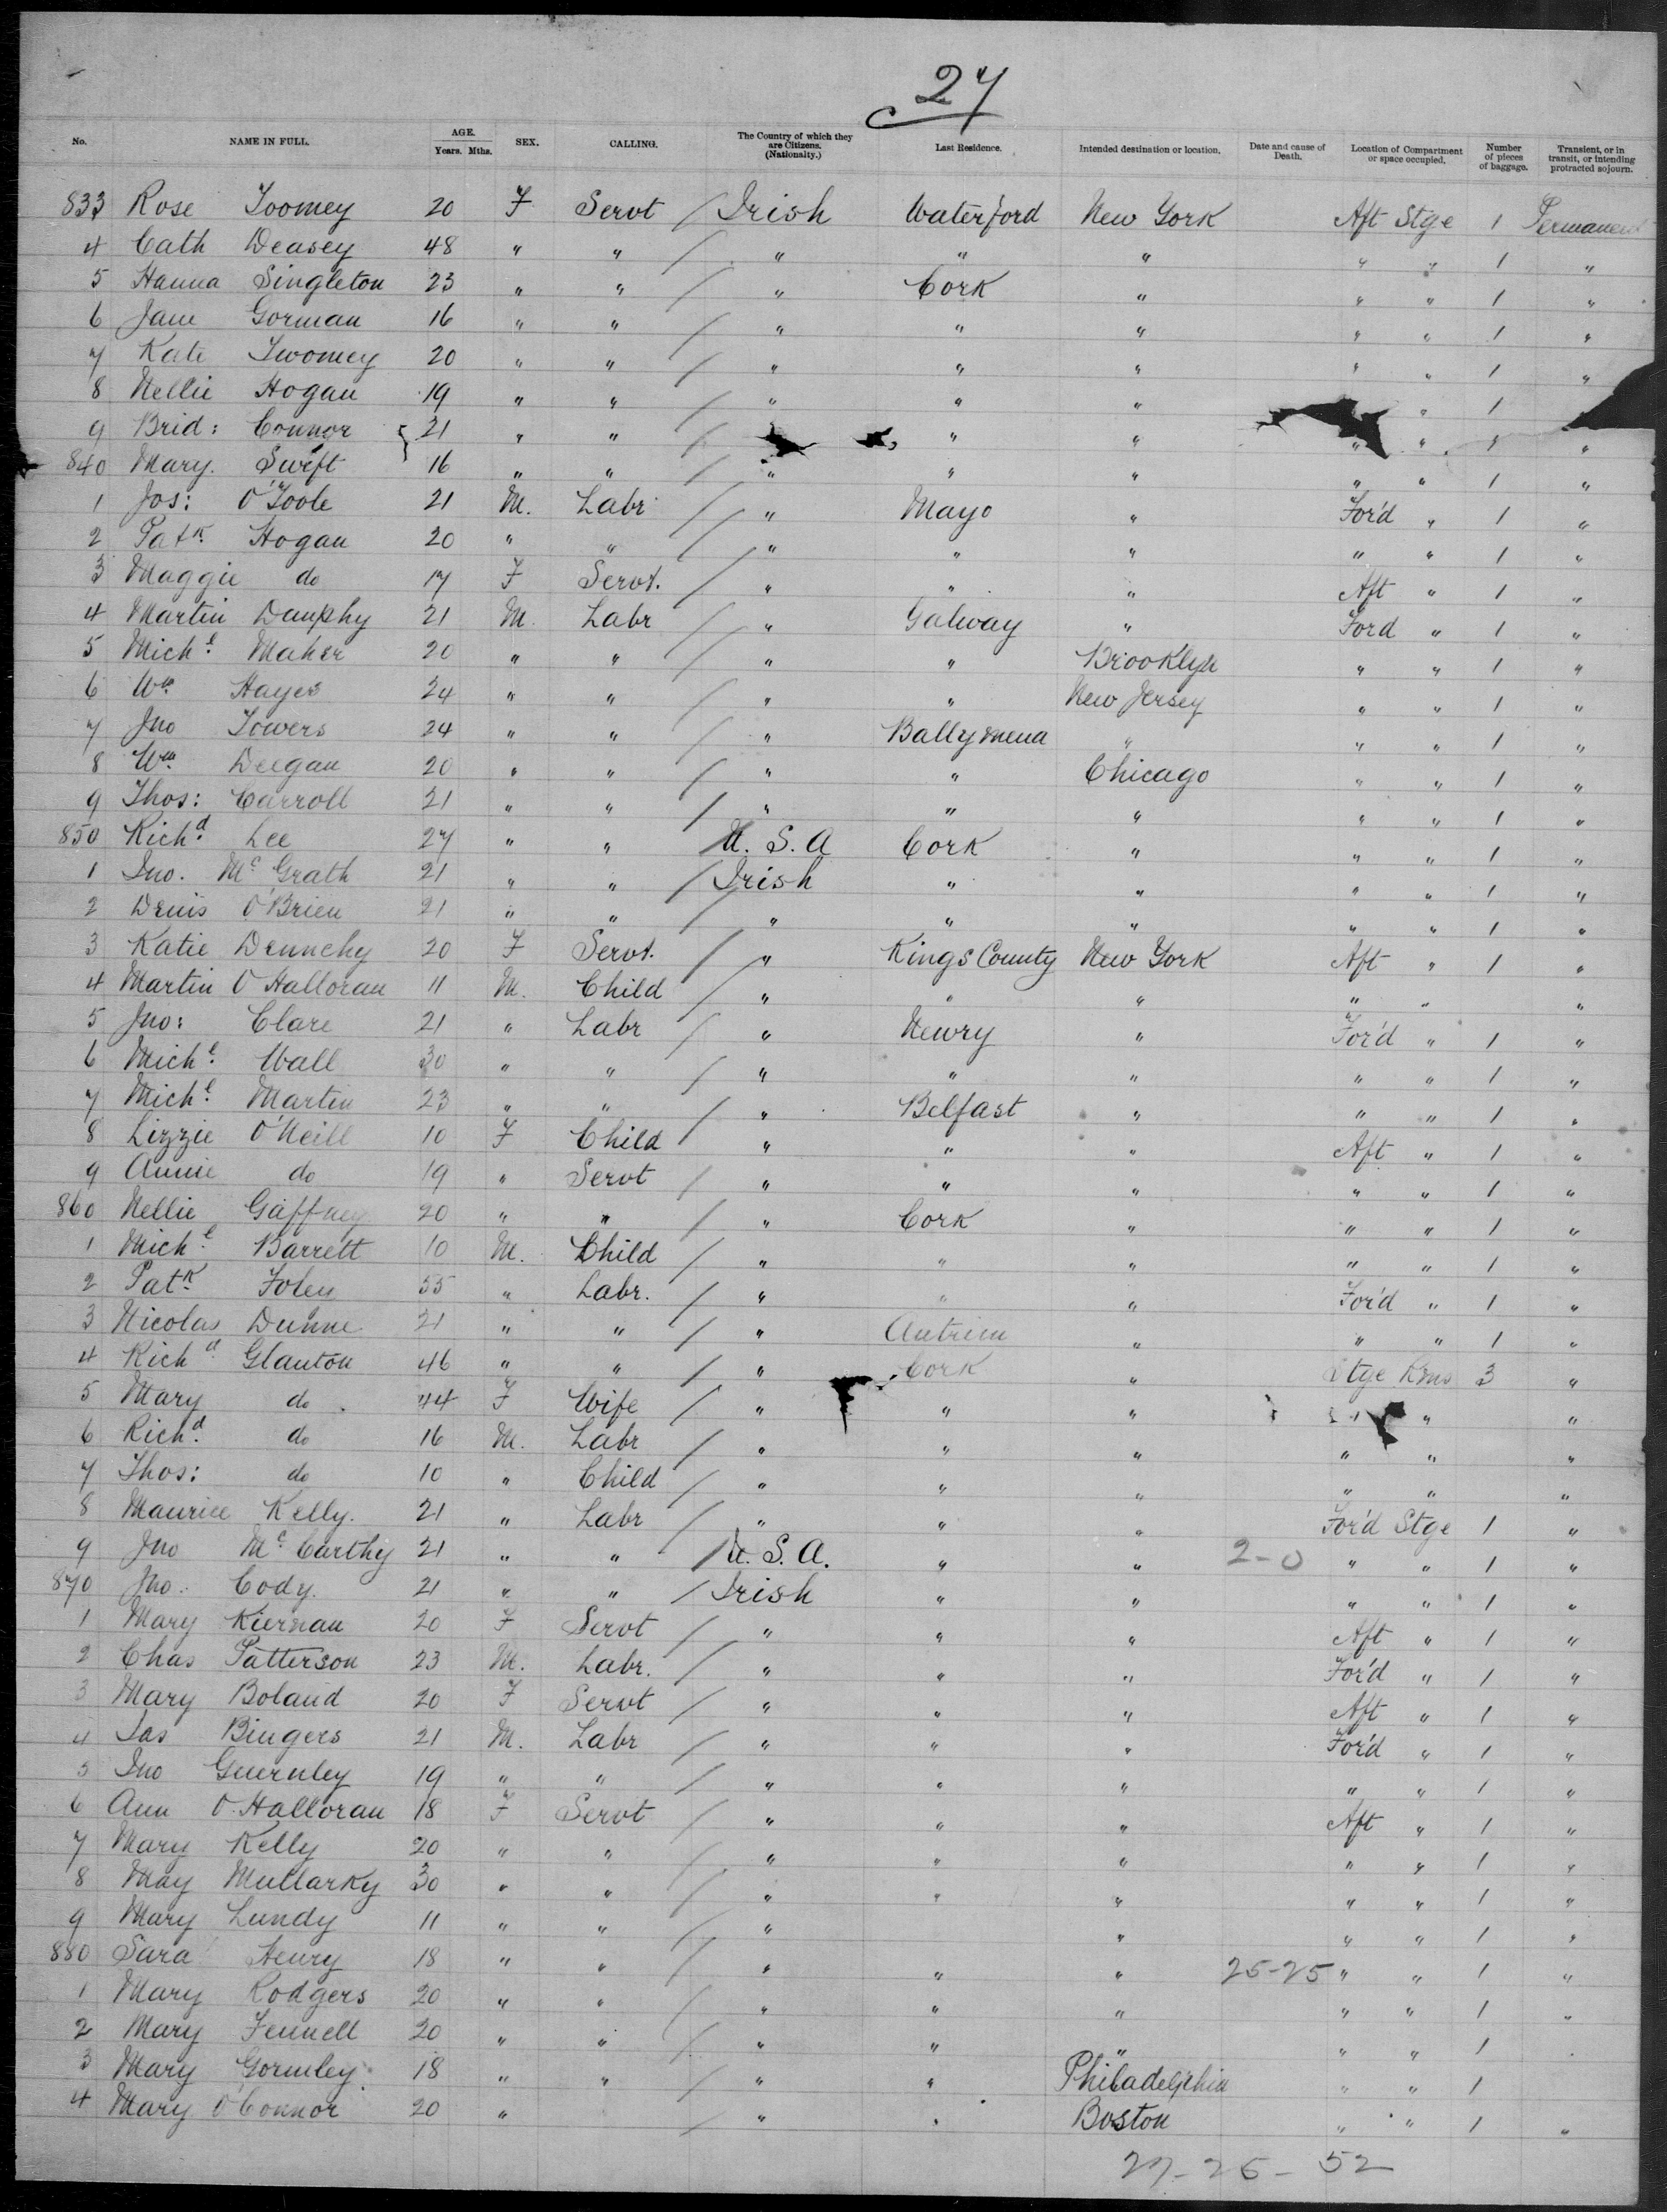 27
No. NAME IN FULL. AGE. Years. Mths. SEX. CALLING. The Country of which they are Citizens. (Nationalty.) Last Residence. Intended destination or location. Date and cause of Death. Location of Compartment or space occupied. Number of pieces of baggage. Transient, or in transit, or intending protracted sojourn.
833 Rose Toomey 20 F Servt / Irish Waterford New York Aft Stge 1 Permanent
4 Cath Deasey 48 " " / " " " " " 1 "
5 Hanna Singleton 23 " " / " Cork " " " 1 "
6 Jane Gorman 16 " " / " " " " " 1 "
7 Kate Twomey 20 " " / " " " " " 1 "
8 Nellie Hogan 19 " " / " " " " 1
9 Brid: Connor 21 " " / " " " " 1 "
840 Mary. Swift 16 " " / " " " " " 1 "
1 Jos: O'Toole 21 M. Labr / " Mayo " For'd " 1 "
2 Patk Hogan 20 " " / " " " " " 1 "
3 Maggie do 17 F Servt. / " " " Aft " 1 "
4 Martin Dauphy 21 M. Labr / " Galway " Ford " 1 "
5 Michl Maher 20 " " / " " Brooklyn " " 1 "
6 Wm Hayes 24 " " / " " New Jersey " " 1 "
7 Jno Towers 24 " " / " Ballymena " " " 1 "
8 Wm Deegan 20 " " / " " Chicago " " 1 "
9 Thos: Carroll 21 " " / " " " " " 1 "
850 Richd Lee 27 " " / U.S.A Cork " " " 1 "
1 Jno. Mc Grath 21 " " / Irish " " " " 1 "
2 Denis O'Brien 21 " " / " " " " " 1 "
3 Katie Dennehy 20 F Servt. / " Kings County New York Aft " 1 "
4 Martin O'Halloran 11 M. Child / " " " " " "
5 Jno: Clare 21 " Labr / " Newry " For'd " 1 "
6 Michl Wall 30 " " / " " " " " 1 "
7 Michl Martin 23 " " / " Belfast " " " 1 "
8 Lizzie O'Neill 10 F Child / " " " Aft " 1 "
9 Annie do 19 " Servt / " " " " " 1 "
860 Nellie Gaffney 20 " " / " Cork " " " 1 "
1 Michl Barrett 10 M. Child / " " " " " 1 "
2 Patk Foley 55 " Labr. / " " " For'd " 1 "
3 Nicolas Dunne 21 " " / " Antrim " " " 1 "
4 Richd Glanton 46 " " / " Cork " Stge Rms 3 "
5 Mary do 44 F Wife / " " " " " "
6 Richd do 16 M. Labr / " " " " " "
7 Thos: do 10 " Child / " " " " " "
8 Maurice Kelly. 21 " Labr / " " " For'd Stge 1 "
9 Jno Mc Carthy 21 " " / U.S.A. " " 2-0 " " 1 "
870 Jno. Cody. 21 " " / Irish " " " " 1 "
1 Mary Kiernan 20 F Servt / " " " Aft " 1 "
2 Chas Patterson 23 M. Labr. / " " " For'd " 1 "
3 Mary Boland 20 F Servt / " " " Aft " 1 "
4 Jas Bingers 21 M. Labr / " " " For'd " 1 "
5 Jno Guernley 19 " " / " " " " " 1 "
6 Ann O'Halloran 18 F Servt / " " " Aft " 1 "
7 Mary Kelly 20 " " / " " " " " 1 "
8 May Mullarky 30 " " / " " " " " 1 "
9 Mary Lundy 11 " " / " " " " 1 "
880 Sara Henry 18 " " / " " " 25-25 " " 1 "
1 Mary Rodgers 20 " " / " " " " " 1 "
2 Mary Fennell 20 " " / " " " " " 1 "
3 Mary Gormley 18 " " / " " Philadelphia " " 1
4 Mary O'Connor 20 " / " " Boston " " 1 "
27-25-52